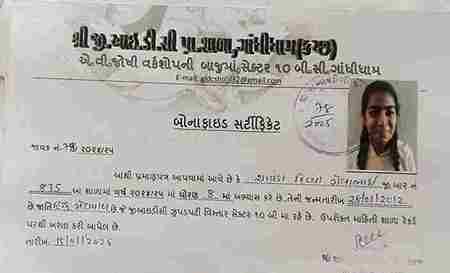 શ્રી જી.આઇ.ડી.સી પ્રા.શાળા,ગાંધીધામ(કચ્છ)
એ.વી.જોષી વર્કશોપની બાજુમાં,સેક્ટર ૧૦ બી.સી.ગાંધીધામ
E-mail:
@gmail.com
78
2025
બોનાફાઇડ સર્ટીફિકેટ
જાવક નં.78 ૨૦૨૪/૨૫
આથી પ્રમાણપત્ર આપવામાં આવે છે કે જી.આર નં
835 આ શાળામાં વર્ષ ૨૦૨૪/૨૫ માં ધોરણ 8 માં અભ્યાસ કરે છે.તેની જન્મતારીખ 2012
છે જાતિ છે જે જીઆઇડીસી ઝુપડપટ્ટી વિસ્તાર સેક્ટર ૧૦ બી મા રહે છે. ઉપરોક્ત માહિતી શાળા રેકર્ડ
પરથી ખરાઇ કરી આપેલ છે.
તારીખ. 15/01/2025